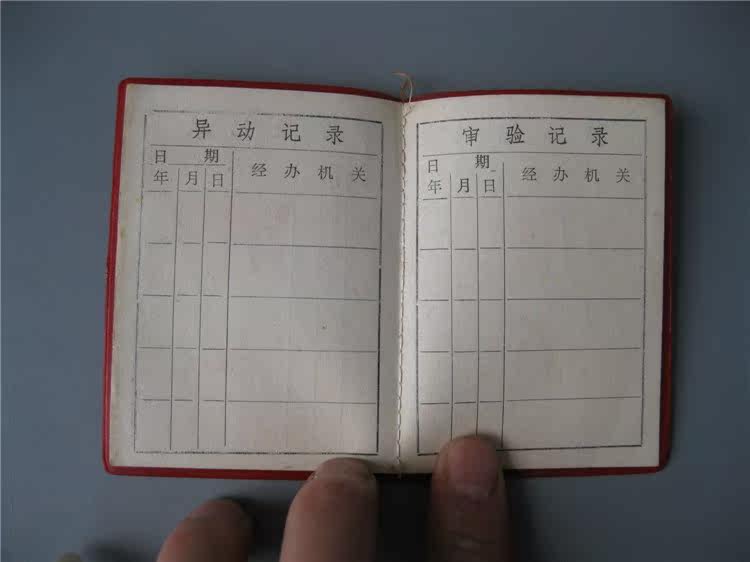 异动记录
日期
经办机关
年月日
审验记录
日期
经办机关
年月日